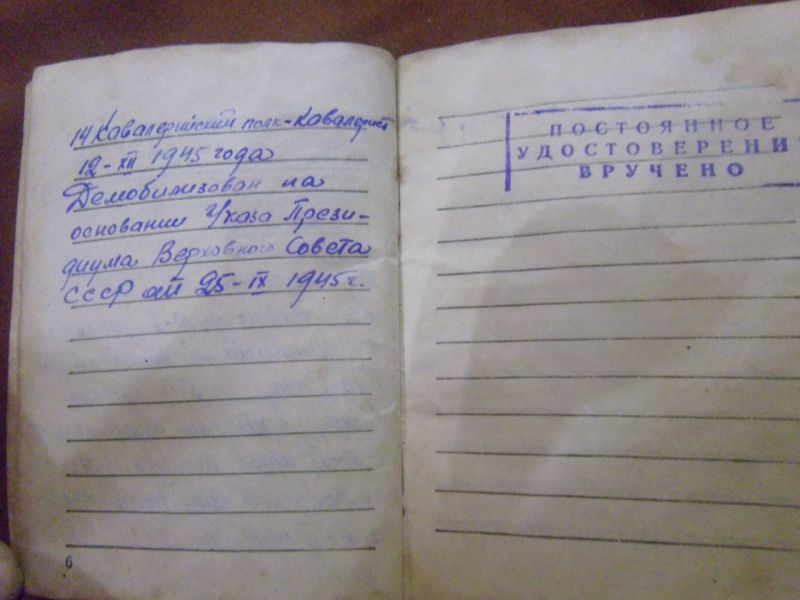 14 Кавалерийский полк-Кавалерист
12-XII 1945 года
Демобилизован на
основании Указа Прези-
диума Верховного Совета
СССР от 25-IX 1945 г.
6
ПОСТОЯННОЕ
УДОСТОВЕРЕНИ
ВРУЧЕНО